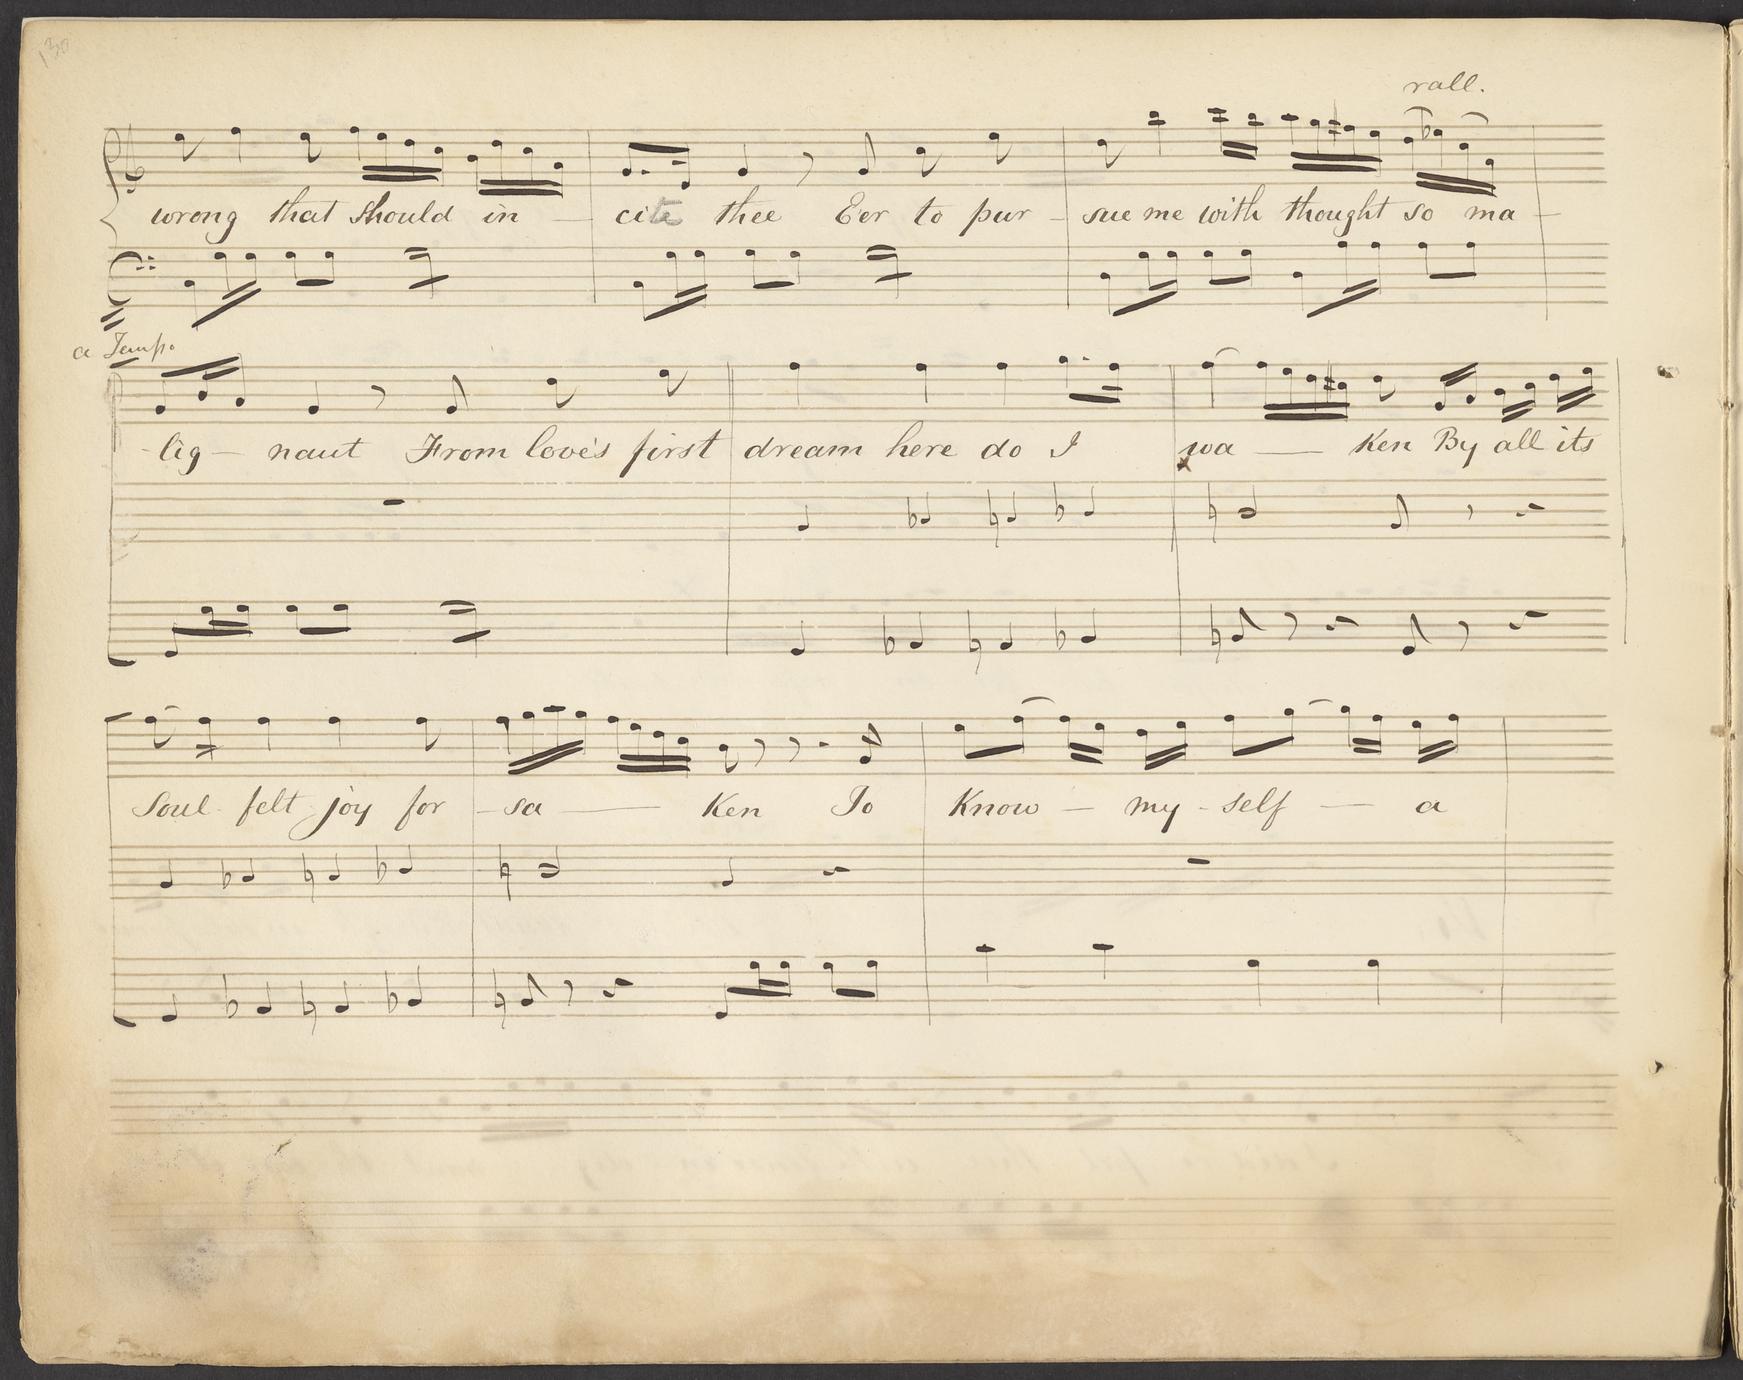 130
rall.
wrong that should in - cite thee Eer to pur - sue me with thought so ma -
a Tempo
- lig - naut From love's first dream here do I wa - Ken By all its
Soul felt joy for - sa - Ken To Know - my - self - a